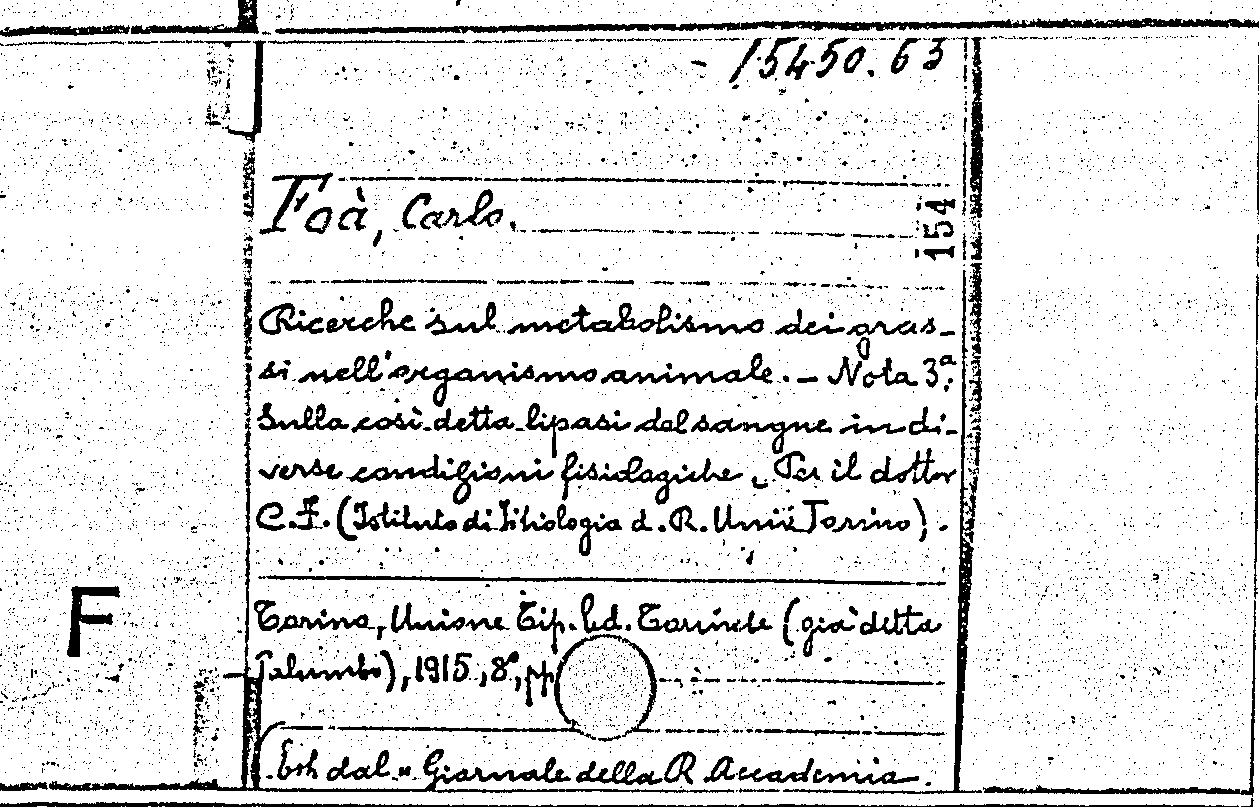 - 15450.63
Foà, Carlo.
154
Ricerche sul metabolismo dei gras-
si nell'organismo animale. - Nota 3ª:
Sulla così detta lipasi del sangue in di-
verse condizioni fisiologiche. Per il dottor
C. F. (Istituto di Fisiologia d. R. Univ. Torino).
F
Torino, Unione Tip. Ed. Torinese (già detta
Palumbo), 1915, 8º, pp
Estr. dal "Giornale della R. Accademia